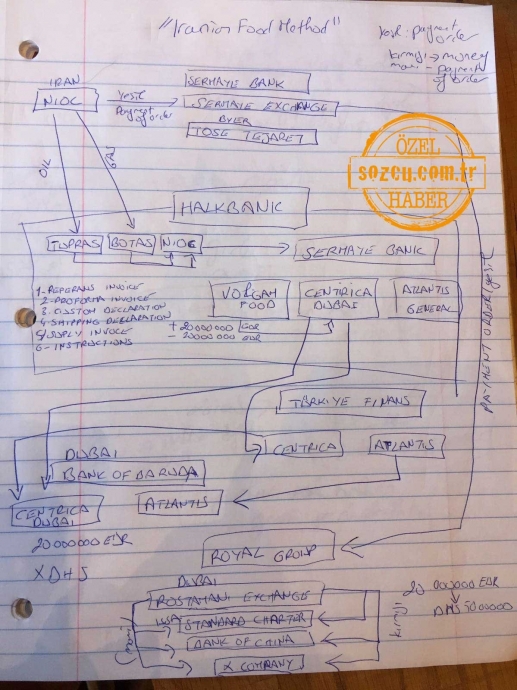 "Iranian Food Method"
yesil: payment order
kirmizi → money
mavi - payment of order
IRAN
NIOC
yesil
Payment of order
SERMAYE BANK
SERMAYE EXCHANGE
BYER
TOSE TEJARET
OIL
GAS
ÖZEL
sozcu.com.tr
HABER
HALKBANK
TUPRAS
BOTAS
NIOC
SERMAYE BANK
1- REFERANS INVOICE
2- PROFORMA INVOICE
3- CUSTOM DECLARATION
4- SHIPPING DECLARATION
5/ SUPPLY INVOICE
6- INSTRUCTIONS
+ 20000000 EUR
- 20000000 EUR
VORGAH FOOD
CENTRICA DUBAI
ATLANTIS GENERAL
PAYMENT ORDER yesil
TÜRKIYE FINANS
CENTRICA
ATLANTIS
DUBAI
BANK OF BARUDA
CENTRICA DUBAI
ATLANTIS
20 000000 EUR
XDHS
ROYAL GROUP
DUBAI
ROSTAMANI EXCHANGE
STANDARD CHARTER
BANK OF CHINA
X COMPANY
kirmizi
20 000000 EUR